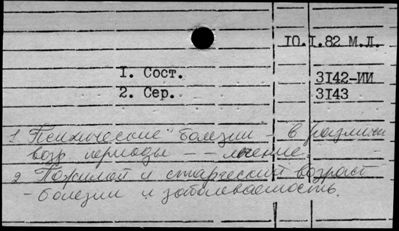 10.I.82 М.Л.
I. Сост.
3I42-ИИ
2. Сер.
3I43
1 Психические болезни - в различн
возр периоды - - лечение
2 Пожилой и старческий возраст
- болезни и заболеваемость.